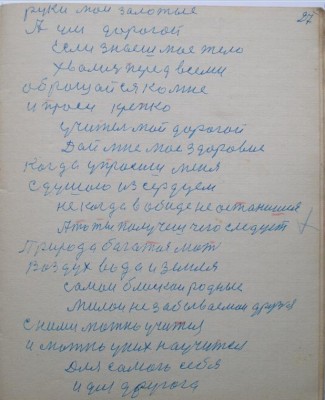 27
руки мои залотые
А ты дорогой
Если знаеш мое тело
Хвалиш перед всеми
обрращайся ко мне
и проси крепко
учитель мой дорогой
Дай мне мое здоровие
Когда упросили меня
с душою из сердцем
не когда в обиде не останиш
А то ты получиш чего следует
Природа багатая мать
Воздух вода и земля
самои близкаи родные
милаи не забываемаи друзия
с ними можно учится
и можно у них научится
Для самого себя
и для другога